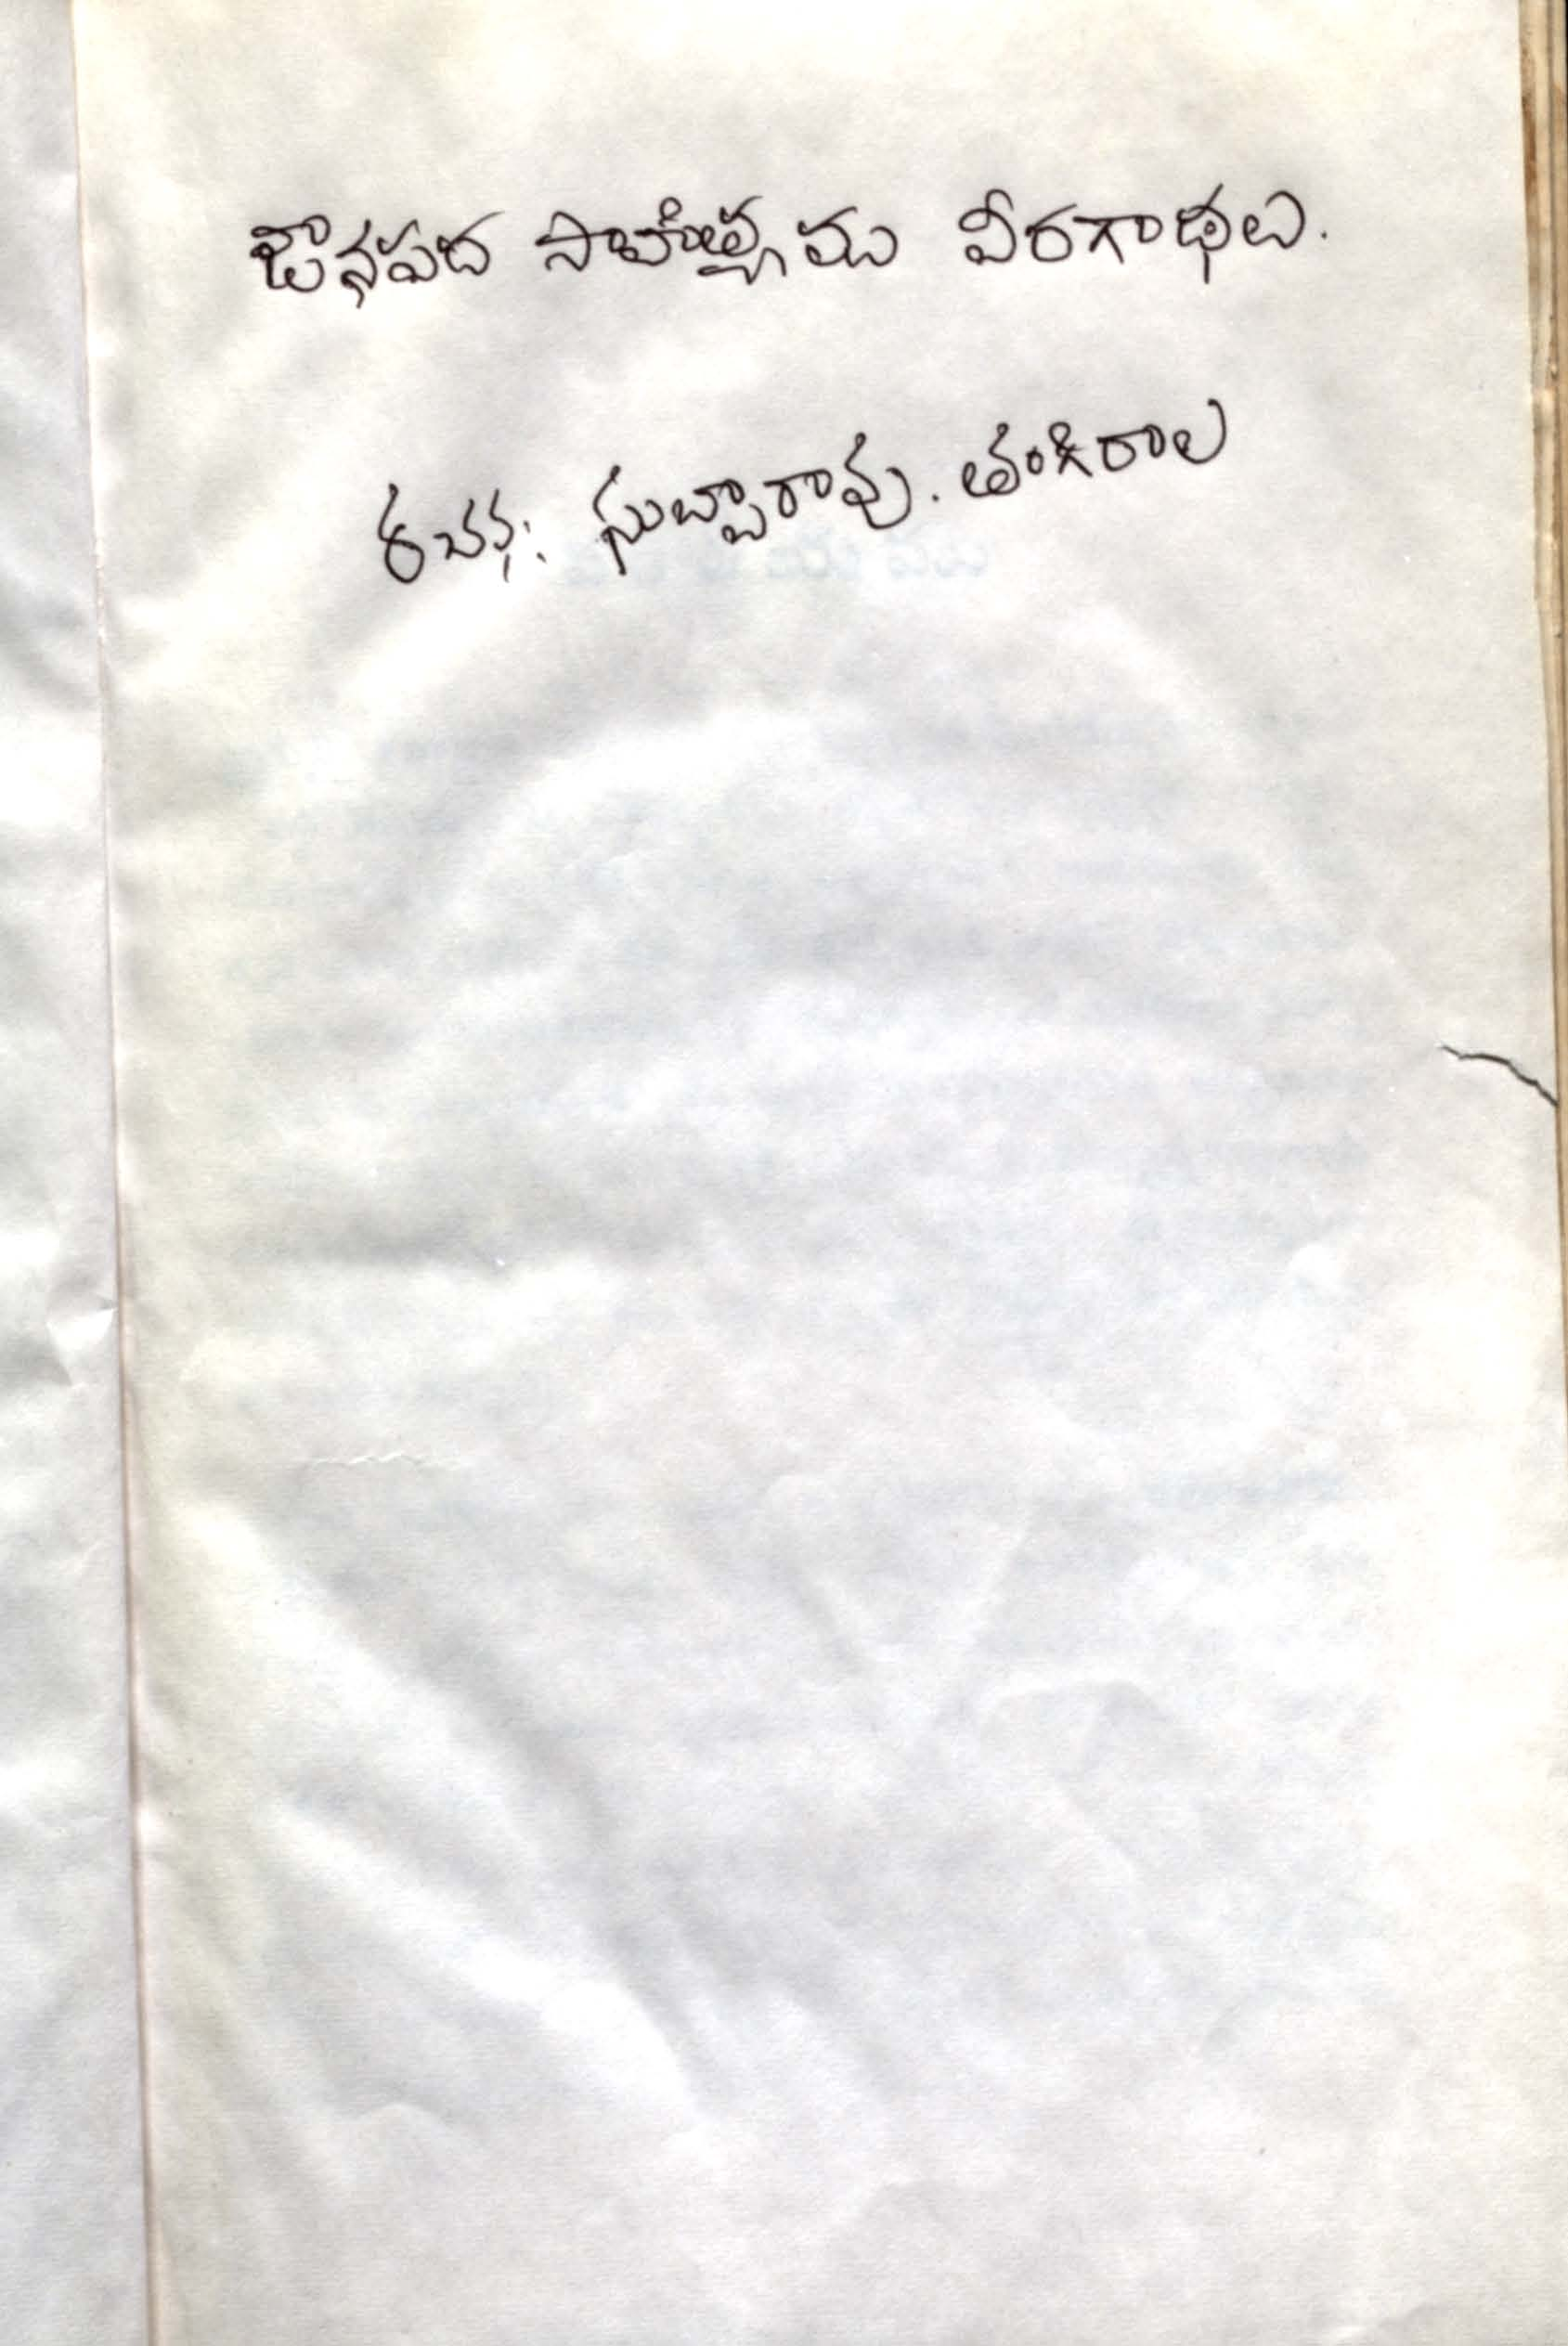 జానపద సాహిత్యము వీరగాథలు.
రచన: సుబ్బారావు. తంగిరాల